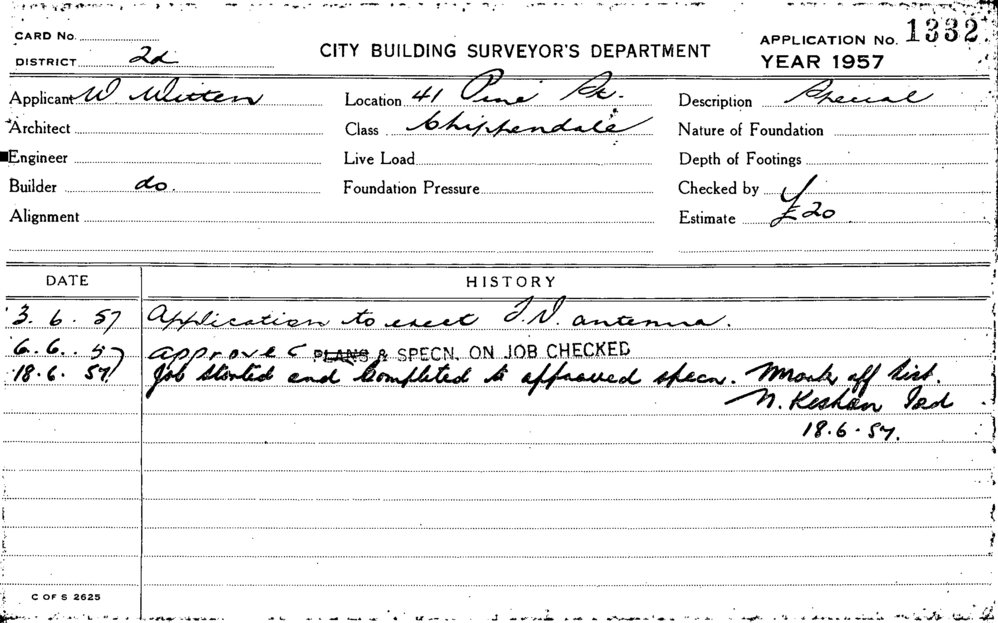 CARD No.
DISTRICT 2d
CITY BUILDING SURVEYOR'S DEPARTMENT
APPLICATION No. 1332
YEAR 1957
Applicant W Witten
Location 41 Pine St.
Description Special
Architect
Class Chippendale
Nature of Foundation
Engineer
Live Load
Depth of Footings
Builder do.
Foundation Pressure
Checked by
Alignment
Estimate £20
DATE
HISTORY
3. 6. 57 Application to erect T.V. antenna.
6.6.. 57 approved PLANS & SPECN. ON JOB CHECKED
18.6. 57. Job Started and Completed to approved specn. Mark off List.
18.6.57.
C OF S 2625